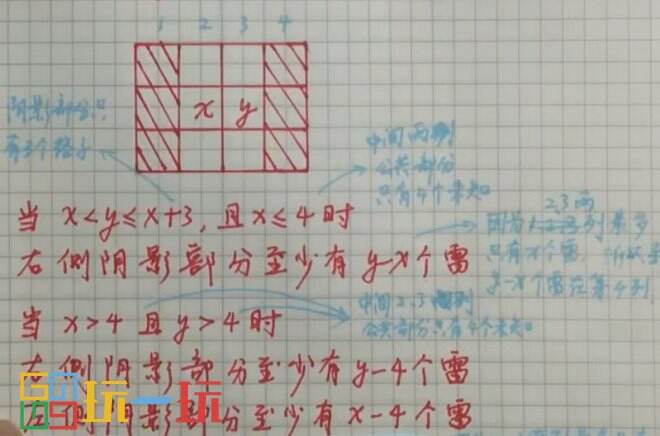 1 2 3 4
x y
阴影部分只
有3个格子
中间两列
公共部分
只有4个未知
当 x<y≤x+3, 且 x≤4 时
右侧阴影部分至少有 y-x 个雷
因为 2,3两列最多
只有x个雷, 所以至
y-x个雷在第4列
当 x>4 且 y>4 时
中间2,3列
公共部分只有4个未知
右侧阴影部分至少有 y-4 个雷
左侧阴影部分至少有 x-4 个雷
玩一玩